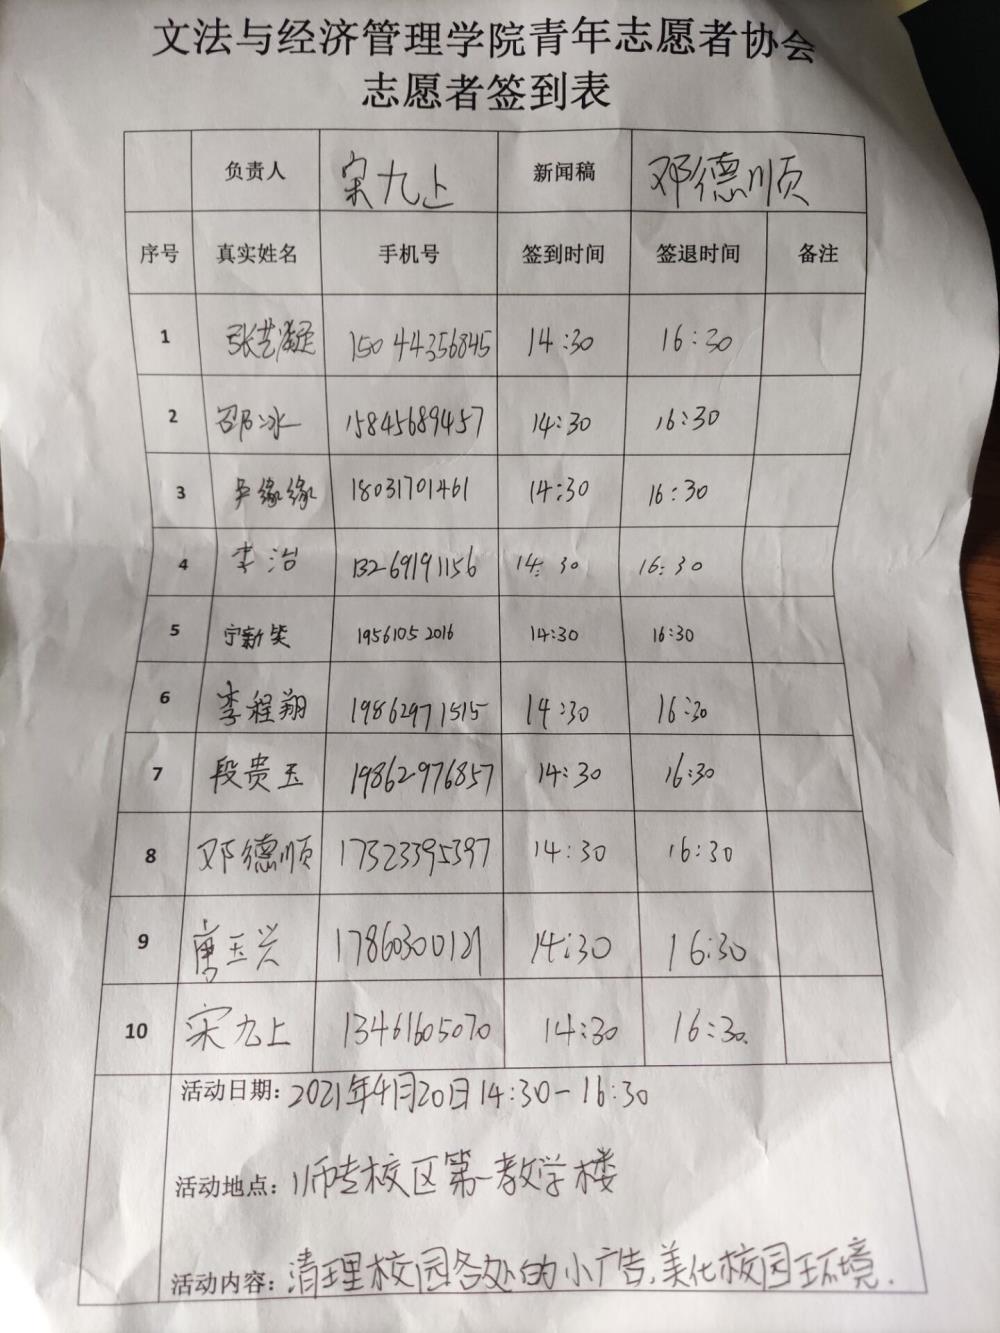 文法与经济管理学院青年志愿者协会
志愿者签到表
负责人 宋九上 新闻稿 邓德顺
序号 真实姓名 手机号 签到时间 签退时间 备注
1 张艺凝 15044356845 14:30 16:30
2 邵冰 15845689457 14:30 16:30
3 尹缘缘 18031701461 14:30 16:30
4 李治 13269191156 14:30 16:30
5 宁新笑 19561052016 14:30 16:30
6 李程翔 19862971515 14:30 16:30
7 段贵玉 19862976857 14:30 16:30
8 邓德顺 17323395397 14:30 16:30
9 唐玉兴 17860300121 14:30 16:30
10 宋九上 13461605070 14:30 16:30.
活动日期: 2021年4月20日14:30-16:30
活动地点: 师专校区第一教学楼
活动内容: 清理校园各处的小广告,美化校园环境.